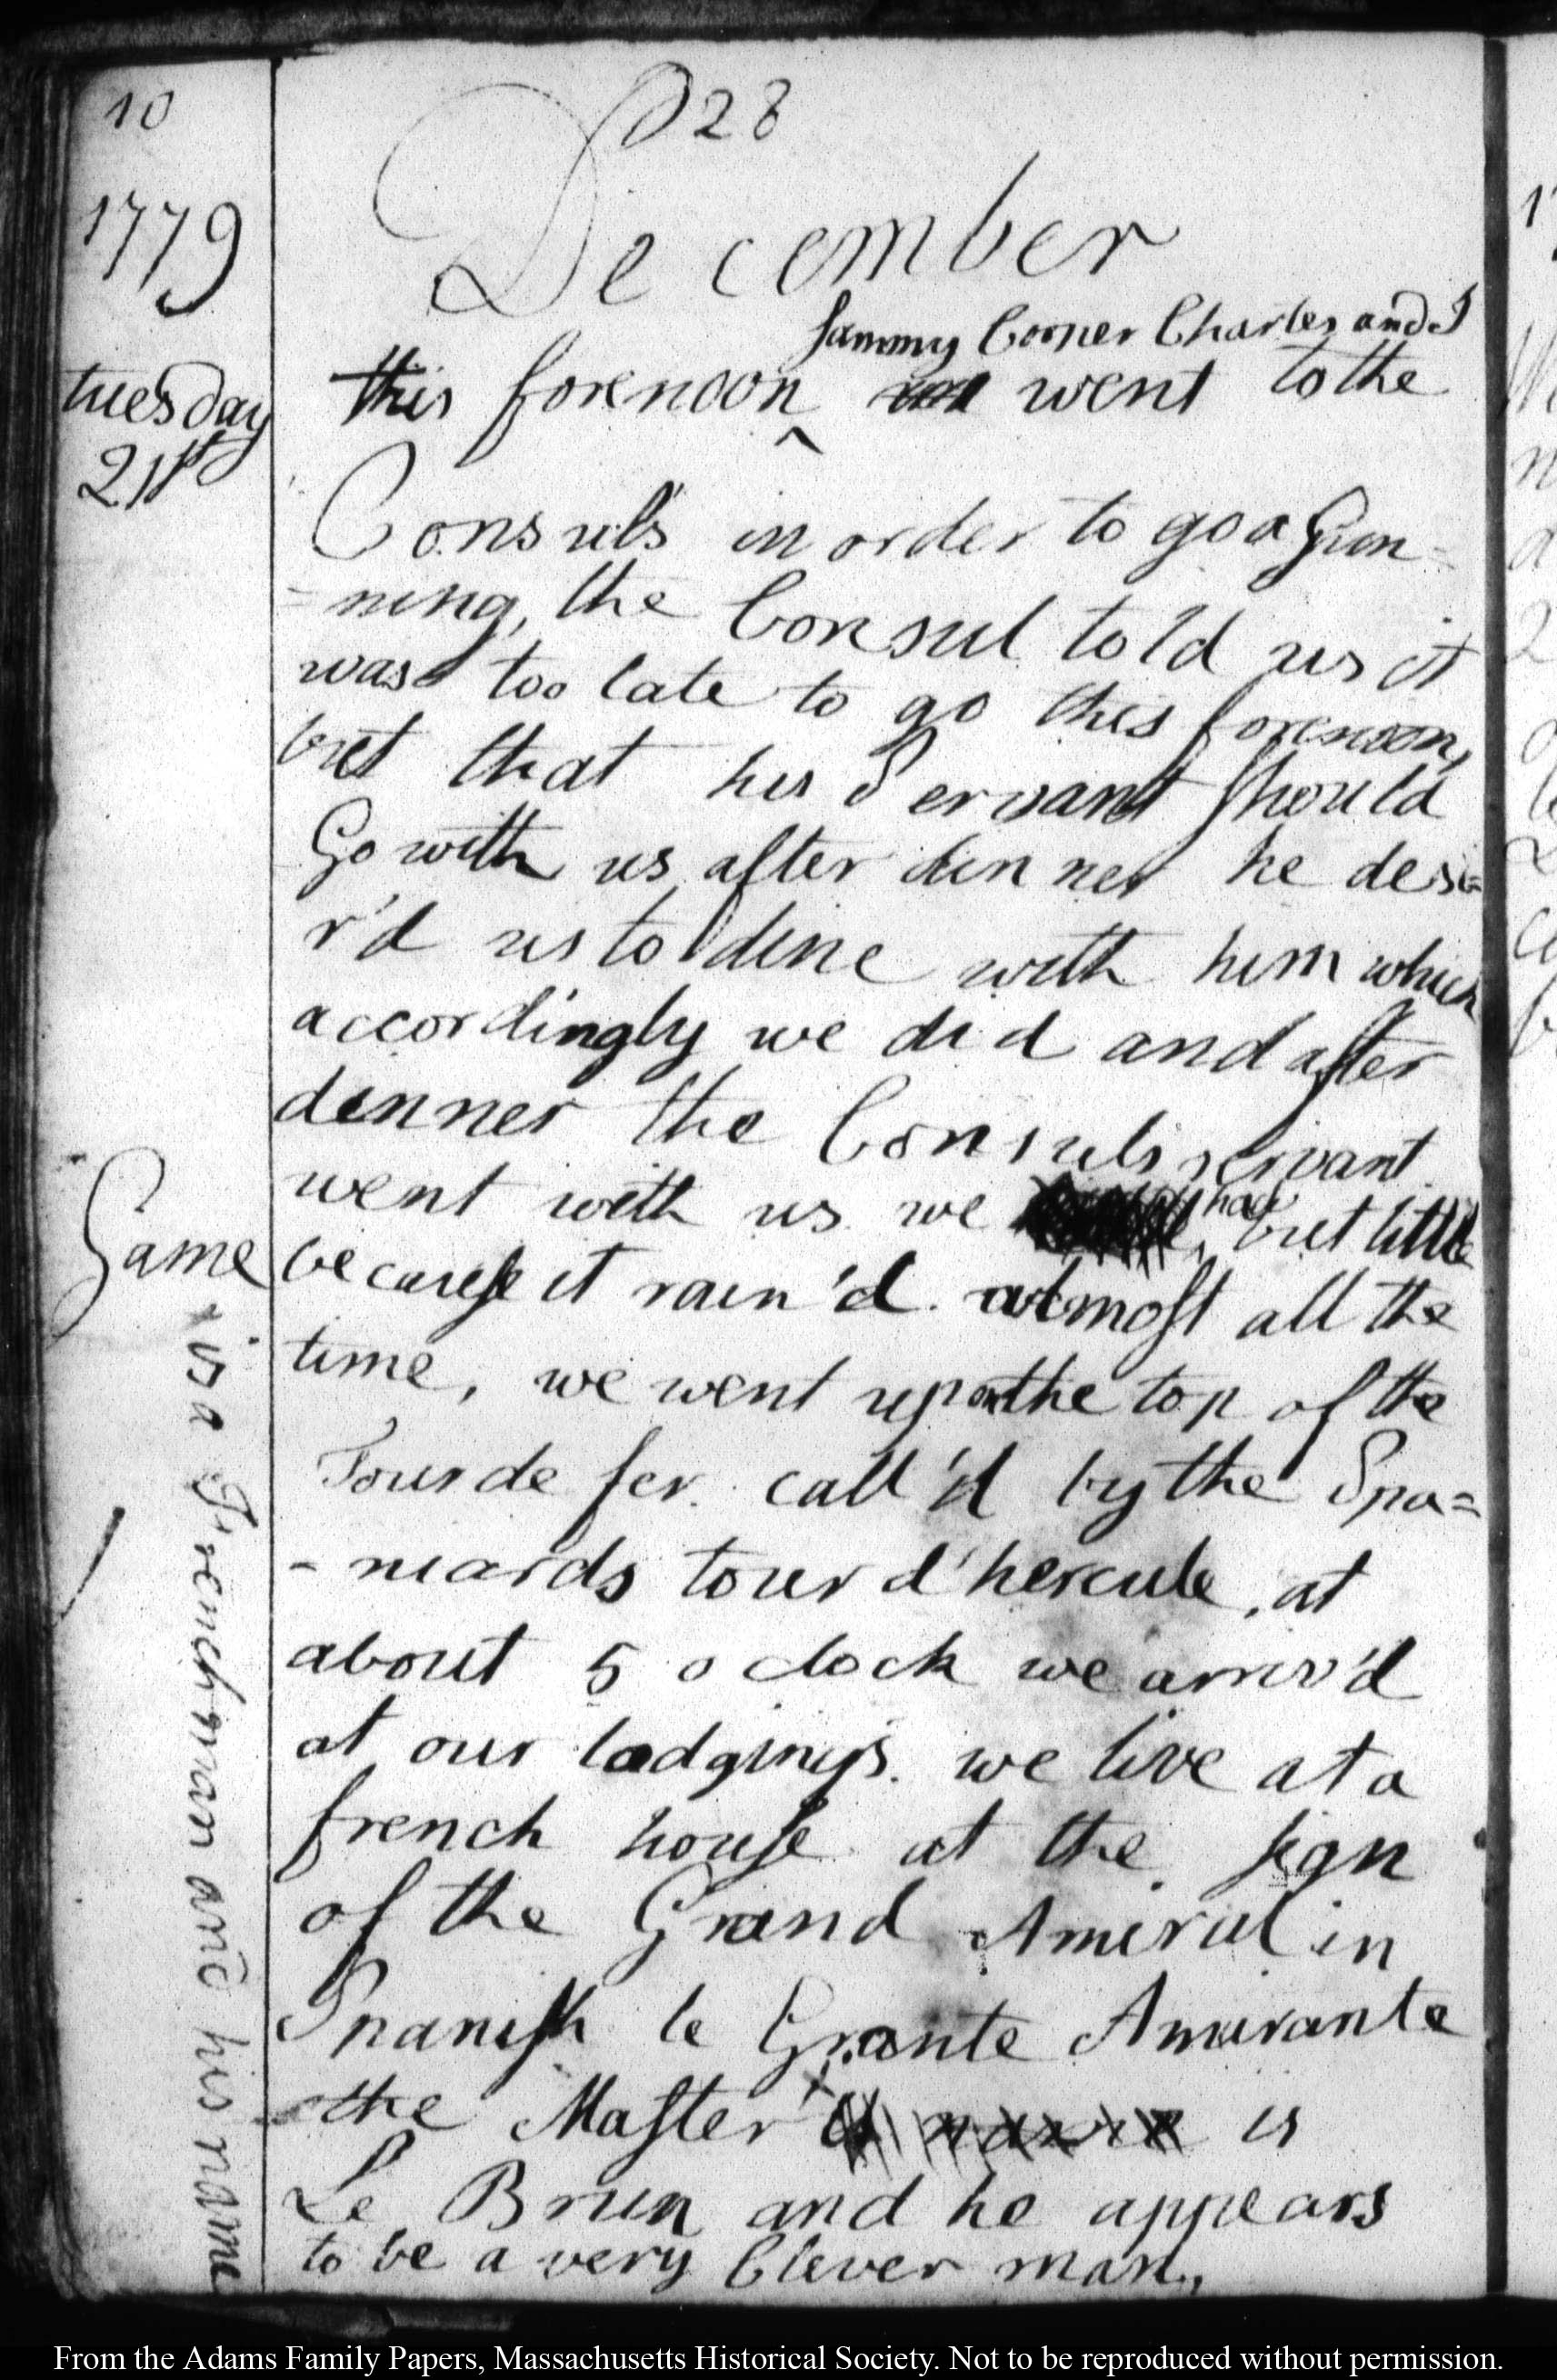 10
D 28
1779
December
tuesday
21st
Sammy Cooper Charles and I
this forenoon ^ went to the
Consul's in order to go a Gun=
=ning, the Consul told us it
was too late to go this forenoon,
but that his Servant should
Go with us after dinner he desi=
r'd us to dine with him which
accordingly we did and after
dinner the Consuls servant
went with us we had but little
Game
because it rain'd. almost all the
time, we went up on the top of the
Tour de fer. call'd by the Spa=
-niards tour d'hercule, at
about 5 o clock we arriv'd
at our lodgings. we live at a
french house at the sign
of the Grand Amiral in
Spanish le Grante Amirante
the Master x is name is
Le Brun and he appears
to be a very Clever man,
x is a Frenchman and his name
From the Adams Family Papers, Massachusetts Historical Society. Not to be reproduced without permission.